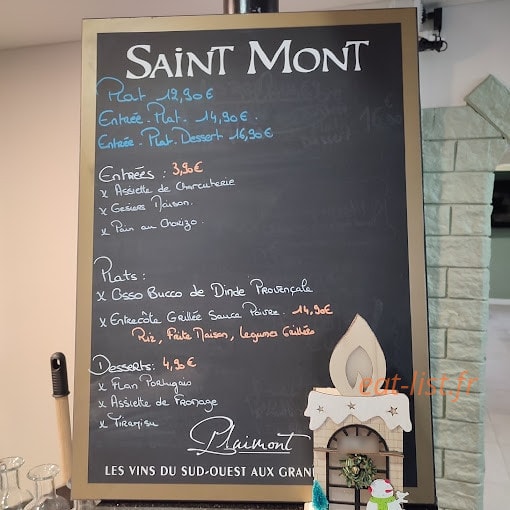 SAINT MONT
Plat 12,90€
Entrée. Plat. 14,90€
Entrée. Plat. Dessert 16,90€
Entrées : 3,90€
x Assiette de Charcuterie
x Gesiers Maison.
x Pain au Chorizo.
Plats :
x Osso Bucco de Dinde Provençale
x Entrecôte Grillée Sauce Poivre. 14,90€
Riz, Frite Maison, Legumes Grillés
Desserts: 4,90€
x Flan Portugais
x Assiette de Fromage
x Tiramisu
Plaimont
LES VINS DU SUD-OUEST AUX GRAN
eat-list.fr